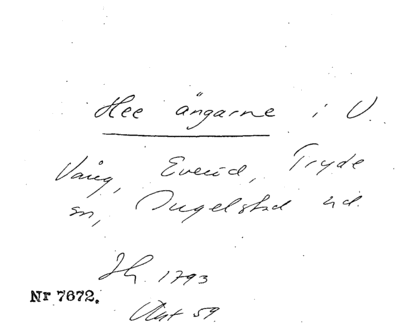 Hee ängarne i V.
Vång, Everöd, Tryde
sn, Ingelstad hd.
Jh. 1793
Nr 7672.
Akt 59.